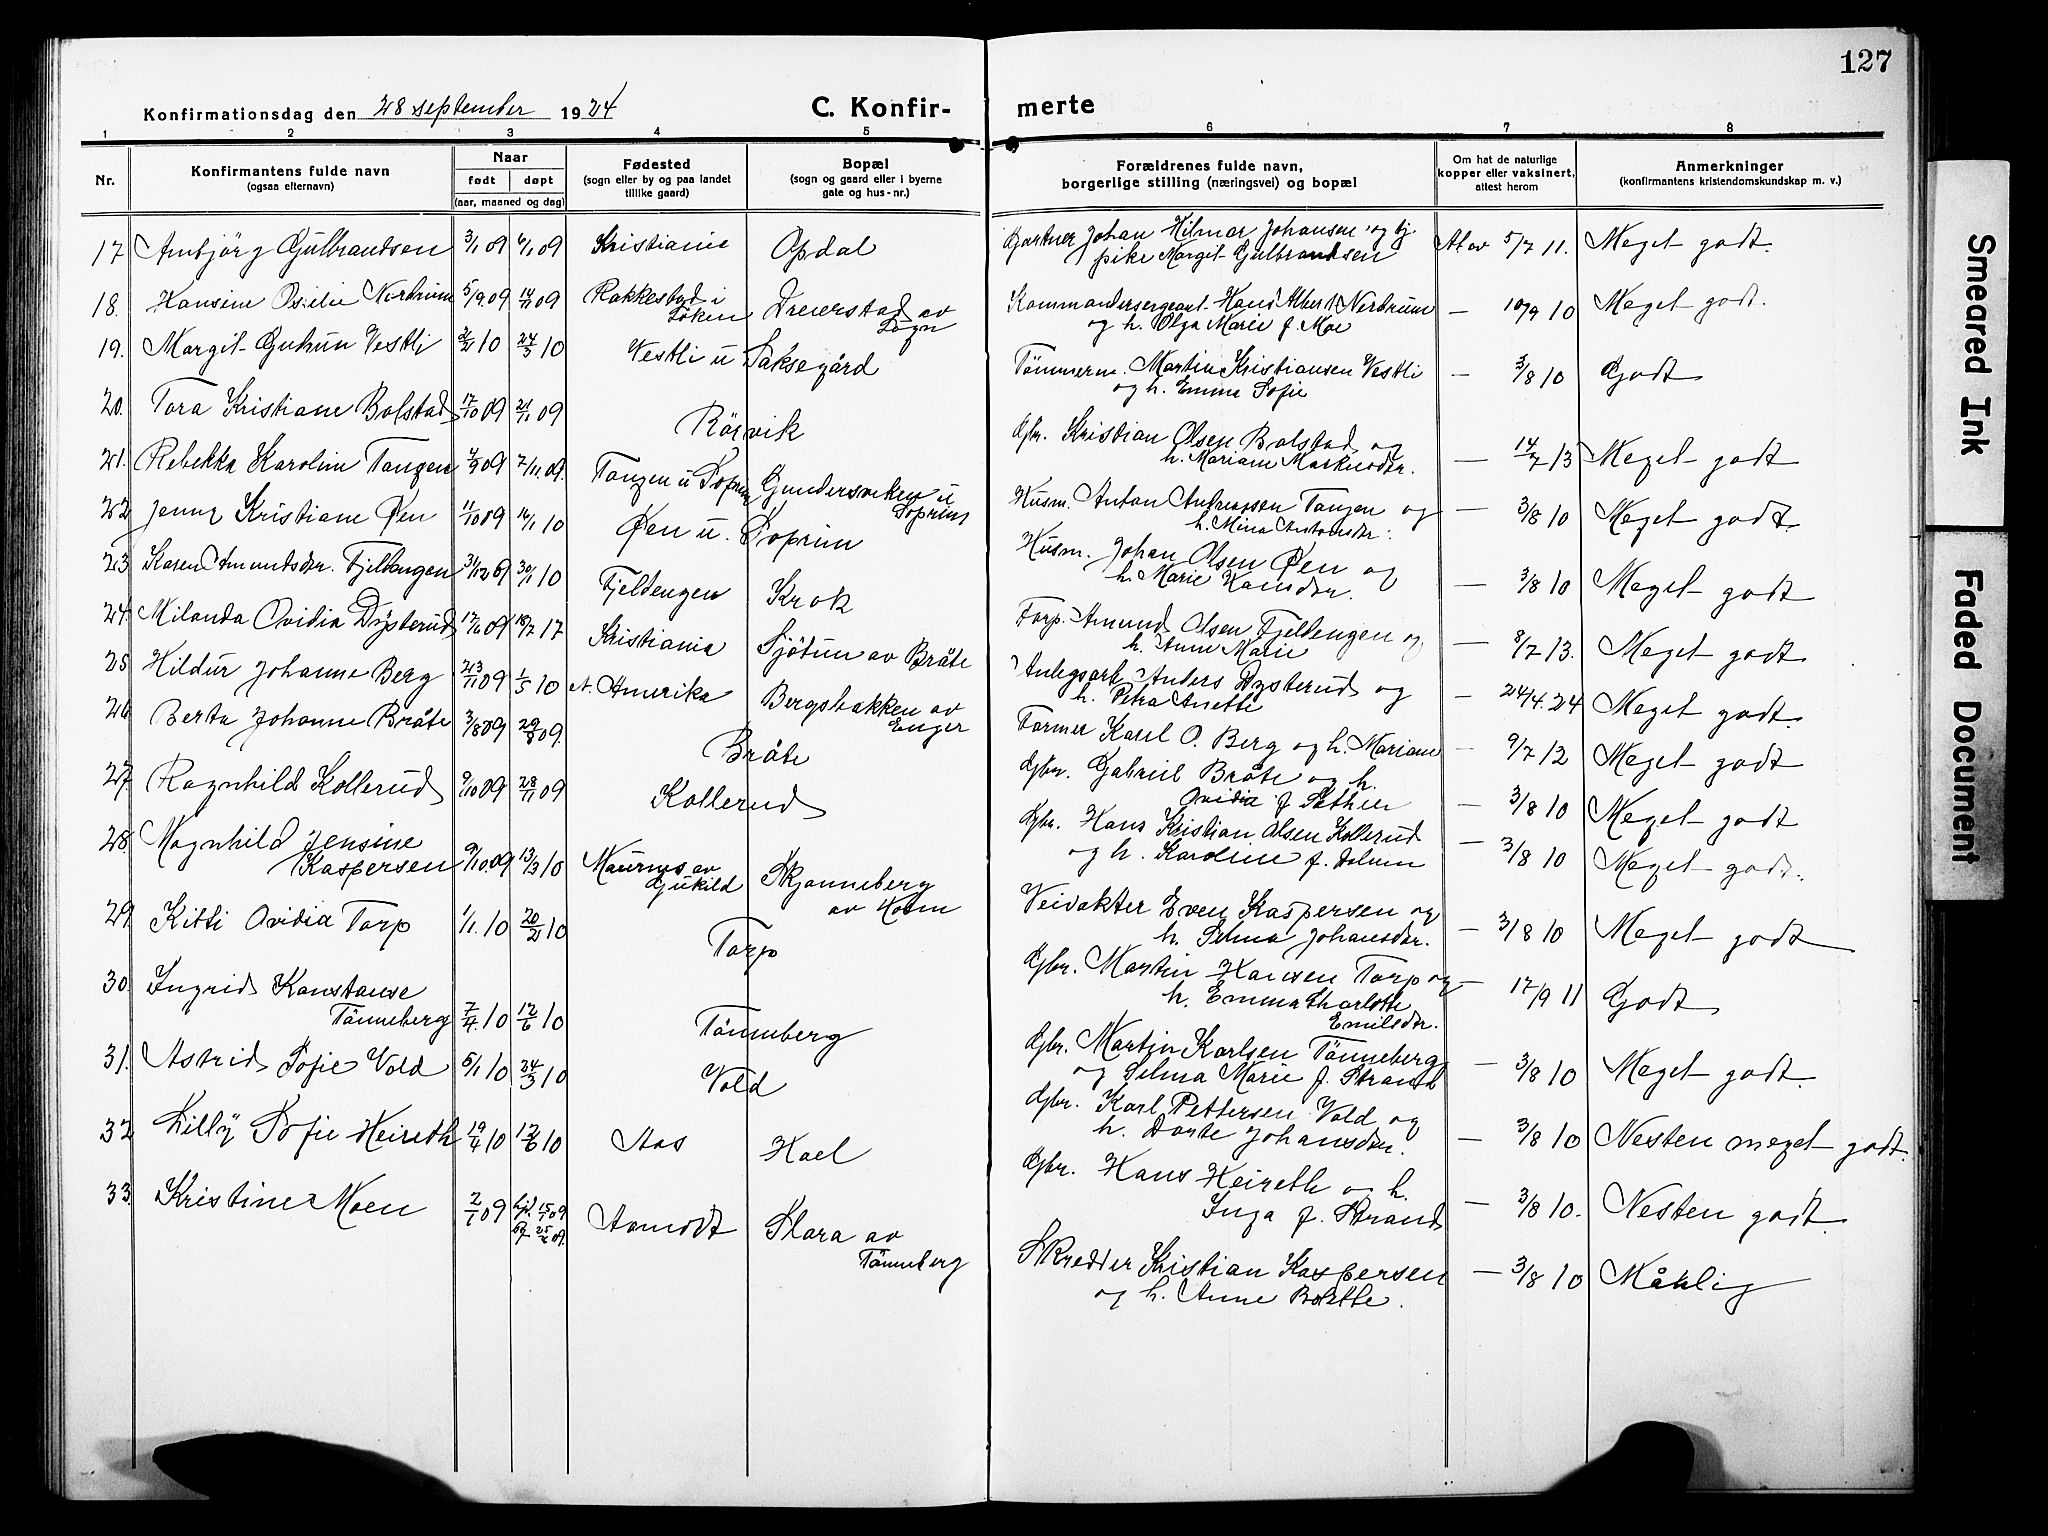 127
Konfirmationsdag den 28 september 1924
C. Konfirmerte
1 2 3 4 5 6 7 8
Nr.
Konfirmantens fulde navn
(ogsaa efternavn)
Naar
født døpt
(aar, maaned og dag)
Fødested
(sogn eller by og paa landet
tillike gaard)
Bopæl
(sogn og gaard eller i byerne
gate og hus-nr.)
Forældrenes fulde navn,
borgerlige stilling (næringsvei) og bopæl
Om hat de naturlige
kopper eller vaksinert,
attest herom
Anmerkninger
(konfirmantens kristendomskundskap m. v.)
17 Ambjörg Gulbrandsen 3/1 09 Kristiania Opdal Gartner Johan Hilmar Johansen og
pike Margit Gulbrandsen 5/7 11. Meget godt.
18. Hansine Nerdrum 5/9 09 14/11 09 Rakkestad i Dreierstad av
Sogn
Kommandersergeant Hans Albert Nerdrum
og h. Olga Marie f. Moe — 10/9 10 Meget godt.
19. Margit Gutrun Vestli 2/2 10 24/3 10 Vestli u Saksegård
Tömmerm. Martin Kristiansen Vestli
og h. Emma Sofie — 3/8 10 Godt
20. Tora Kristiane Bolstad 17/10 09 21/11 09 Rörvik
Gbr. Kristian Olsen Bolstad og
h. Mariane Markusdr. — 14/7 13 Meget godt
21. Rebekka Karoline Tangen 4/9 09 7/11 09. Tangen u Soprim Gundersviken u
Soprim
Husm. Anton Tangen og
h. Mina Antonsdr. — 3/8 10 Meget godt.
22 Jenny Kristiane Øen 11/10 09 14/1 10 Øen u. Soprim
Husm. Johan Olsen Øen og
h. Marie Hansdr. — 3/8 10 Meget godt
23 Karen Amundsdr. Fjeldengen 31/12 09 30/1 10 Fjeldengen Krok
Torp. Amund Olsen Fjeldengen og
h. Anne Marie — 8/7 13. Meget godt
24. Milanda Ovidia Dysterud 17/6 09 18/7 17 Kristiania Sjötun av Bråte
Anders Dysterud og
h. Petra Anette — 24/4. 24 Meget godt.
25 Hildur Johanne Berg 23/11 09 1/5 10 N. Amerika Bergsbakken av
Enger
Farmer Karl O. Berg og h. Mariane — 9/7 12 Meget godt
26 Berta Johanne Bråte 3/8 09 29/8 09. Bråte
Gbr. Gabriel Bråte og h.
Ovidia f Sæther — 3/8 10 Meget godt
27. Ragnhild Kollerud 9/10 09 28/11 09 Kollerud
Gbr. Hans Kristian Olsen Kollerud
og h. Karoline f. — 3/8 10 Meget godt.
28. Magnhild Jensine
Kaspersen 9/10. 09 13/3 10 av
Skjønneberg
av Holm
Veivakter Even Kaspersen og
h. Selma Johansdr. — 3/8 10 Meget godt
29. Kitti Ovidia Torp 1/1. 10 20/2 10 Torp
Gbr. Martin Hansen Torp og
h. Emma Charlotte
Emilsdr. — 17/9 11 Godt
30. Ingrid Konstanse
Tönneberg 7/4. 10 12/6 10 Tönneberg
Gbr. Martin Karlsen Tönneberg
og Selma Marie f. Strand — 3/8 10 Meget godt.
31. Astrid Sofie Vold 5/1 10 24/3 10 Vold
Gbr. Karl Pettersen Vold og
h. Dorte Johansdr. — 3/8 10 Nesten meget godt.
32 Lilly Sofie Heireth 19/4 10 12/6 10 Aas Hael
Gbr. Hans Heireth og h.
Inga f. Strand — 3/8 10. Nesten godt
33. Kristine Moen 2/1 09 hjd. 15/1 09 Aamodt Skara av
Tönneberg
Skredder Kristian Kaspersen
og h. Anne Bolette. — 3/8 10 Måtelig
Smeared Ink
Faded Document